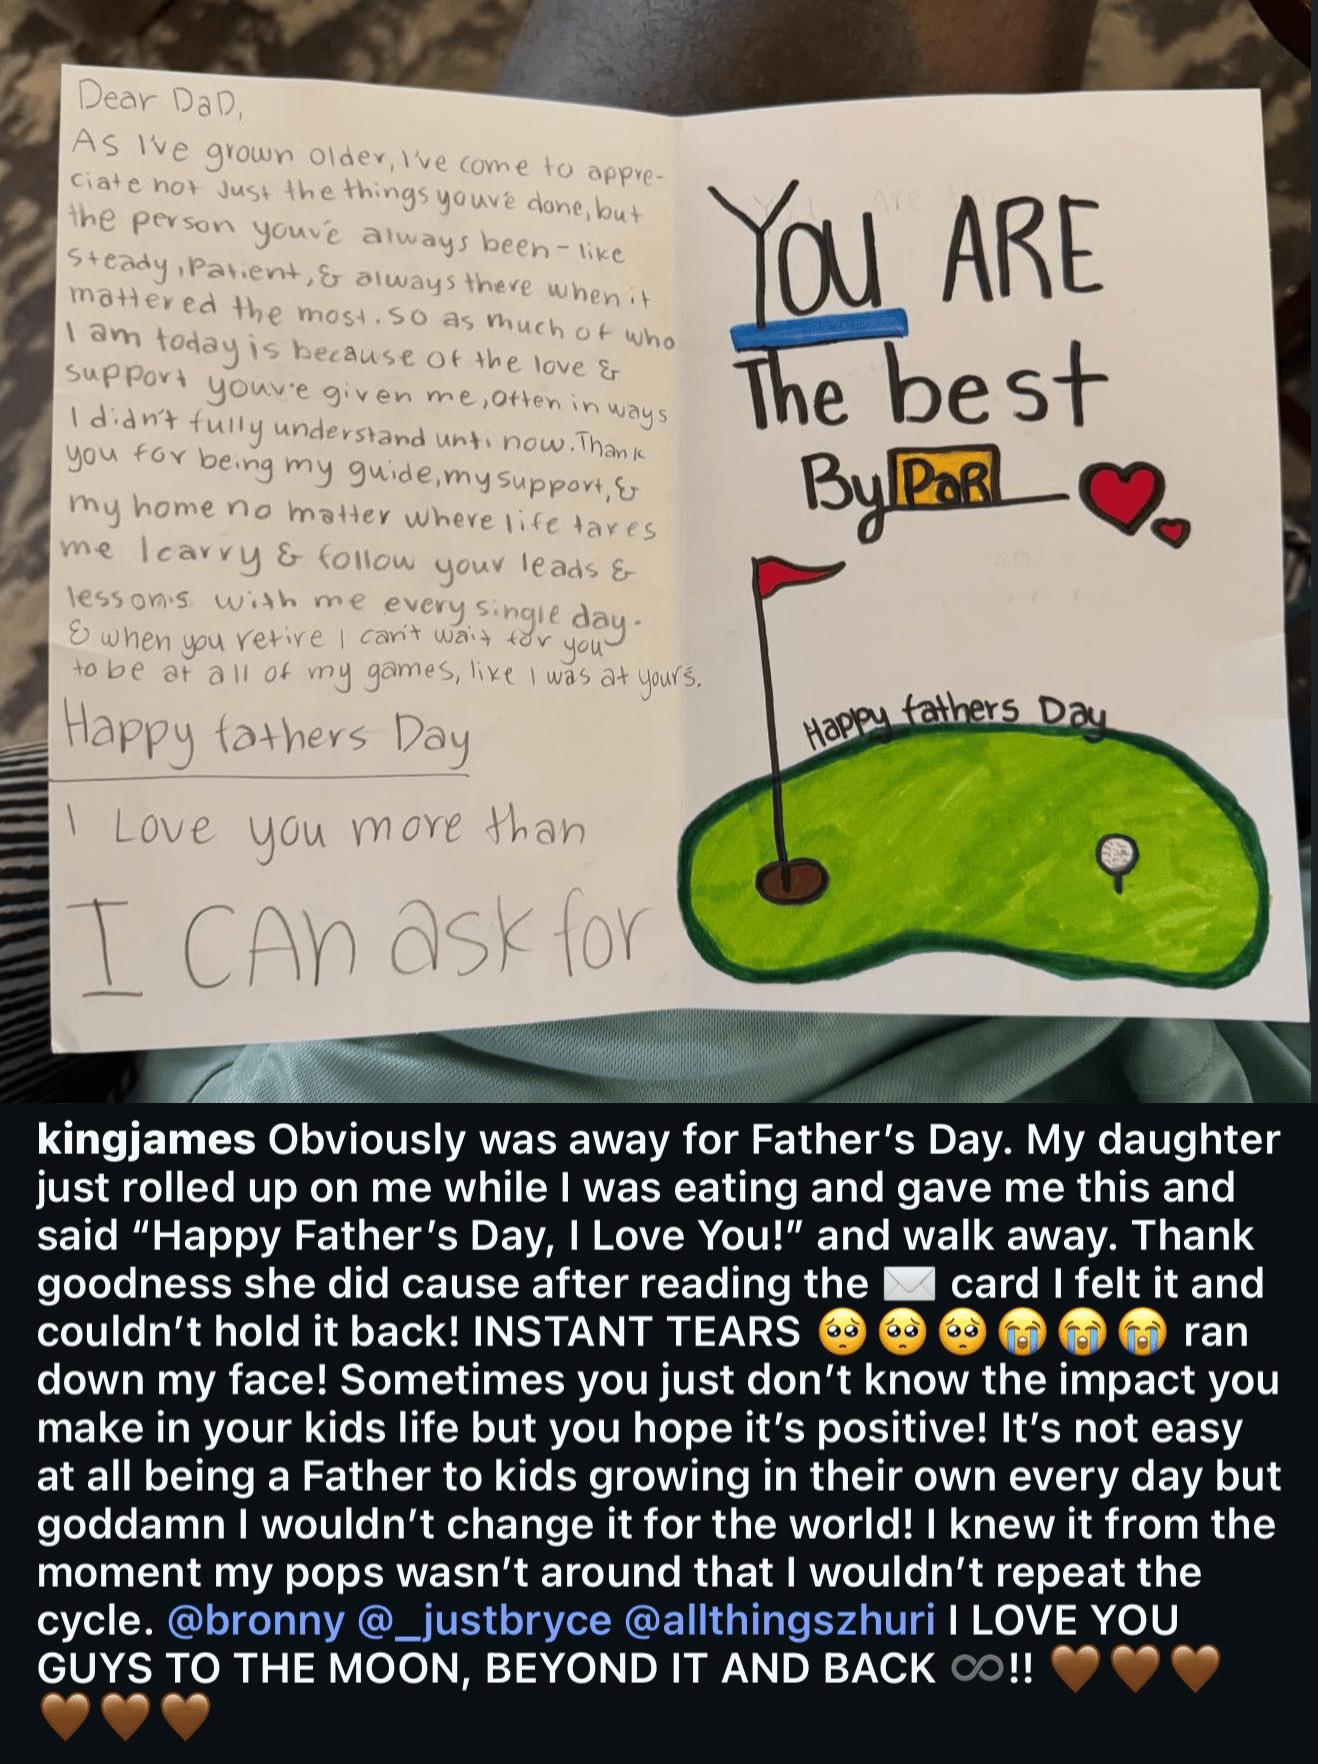 Dear DaD,
As I've grown older, I've come to appre-
ciate not just the things you've done, but
the person you've always been - like
steady, patient, & always there when it
mattered the most. So as much of who
I am today is because of the love &
support you've given me, often in ways
I didn't fully understand unti now. Thank
you for being my guide, my support, &
my home no matter where life takes
me I carry & follow your leads &
lessons with me every single day.
& when you retire I can't wait for you
to be at all of my games, like I was at yours.
Happy fathers Day
I Love you more than
I CAn ask for
You ARE
The best
By PaR
Happy fathers Day
kingjames Obviously was away for Father’s Day. My daughter
just rolled up on me while I was eating and gave me this and
said “Happy Father’s Day, I Love You!” and walk away. Thank
goodness she did cause after reading the ✉️ card I felt it and
couldn’t hold it back! INSTANT TEARS 🥺🥺🥺😭😭😭 ran
down my face! Sometimes you just don’t know the impact you
make in your kids life but you hope it’s positive! It’s not easy
at all being a Father to kids growing in their own every day but
goddamn I wouldn’t change it for the world! I knew it from the
moment my pops wasn’t around that I wouldn’t repeat the
cycle. @bronny @_justbryce @allthingszhuri I LOVE YOU
GUYS TO THE MOON, BEYOND IT AND BACK ♾️!! 🤎🤎🤎
🤎🤎🤎